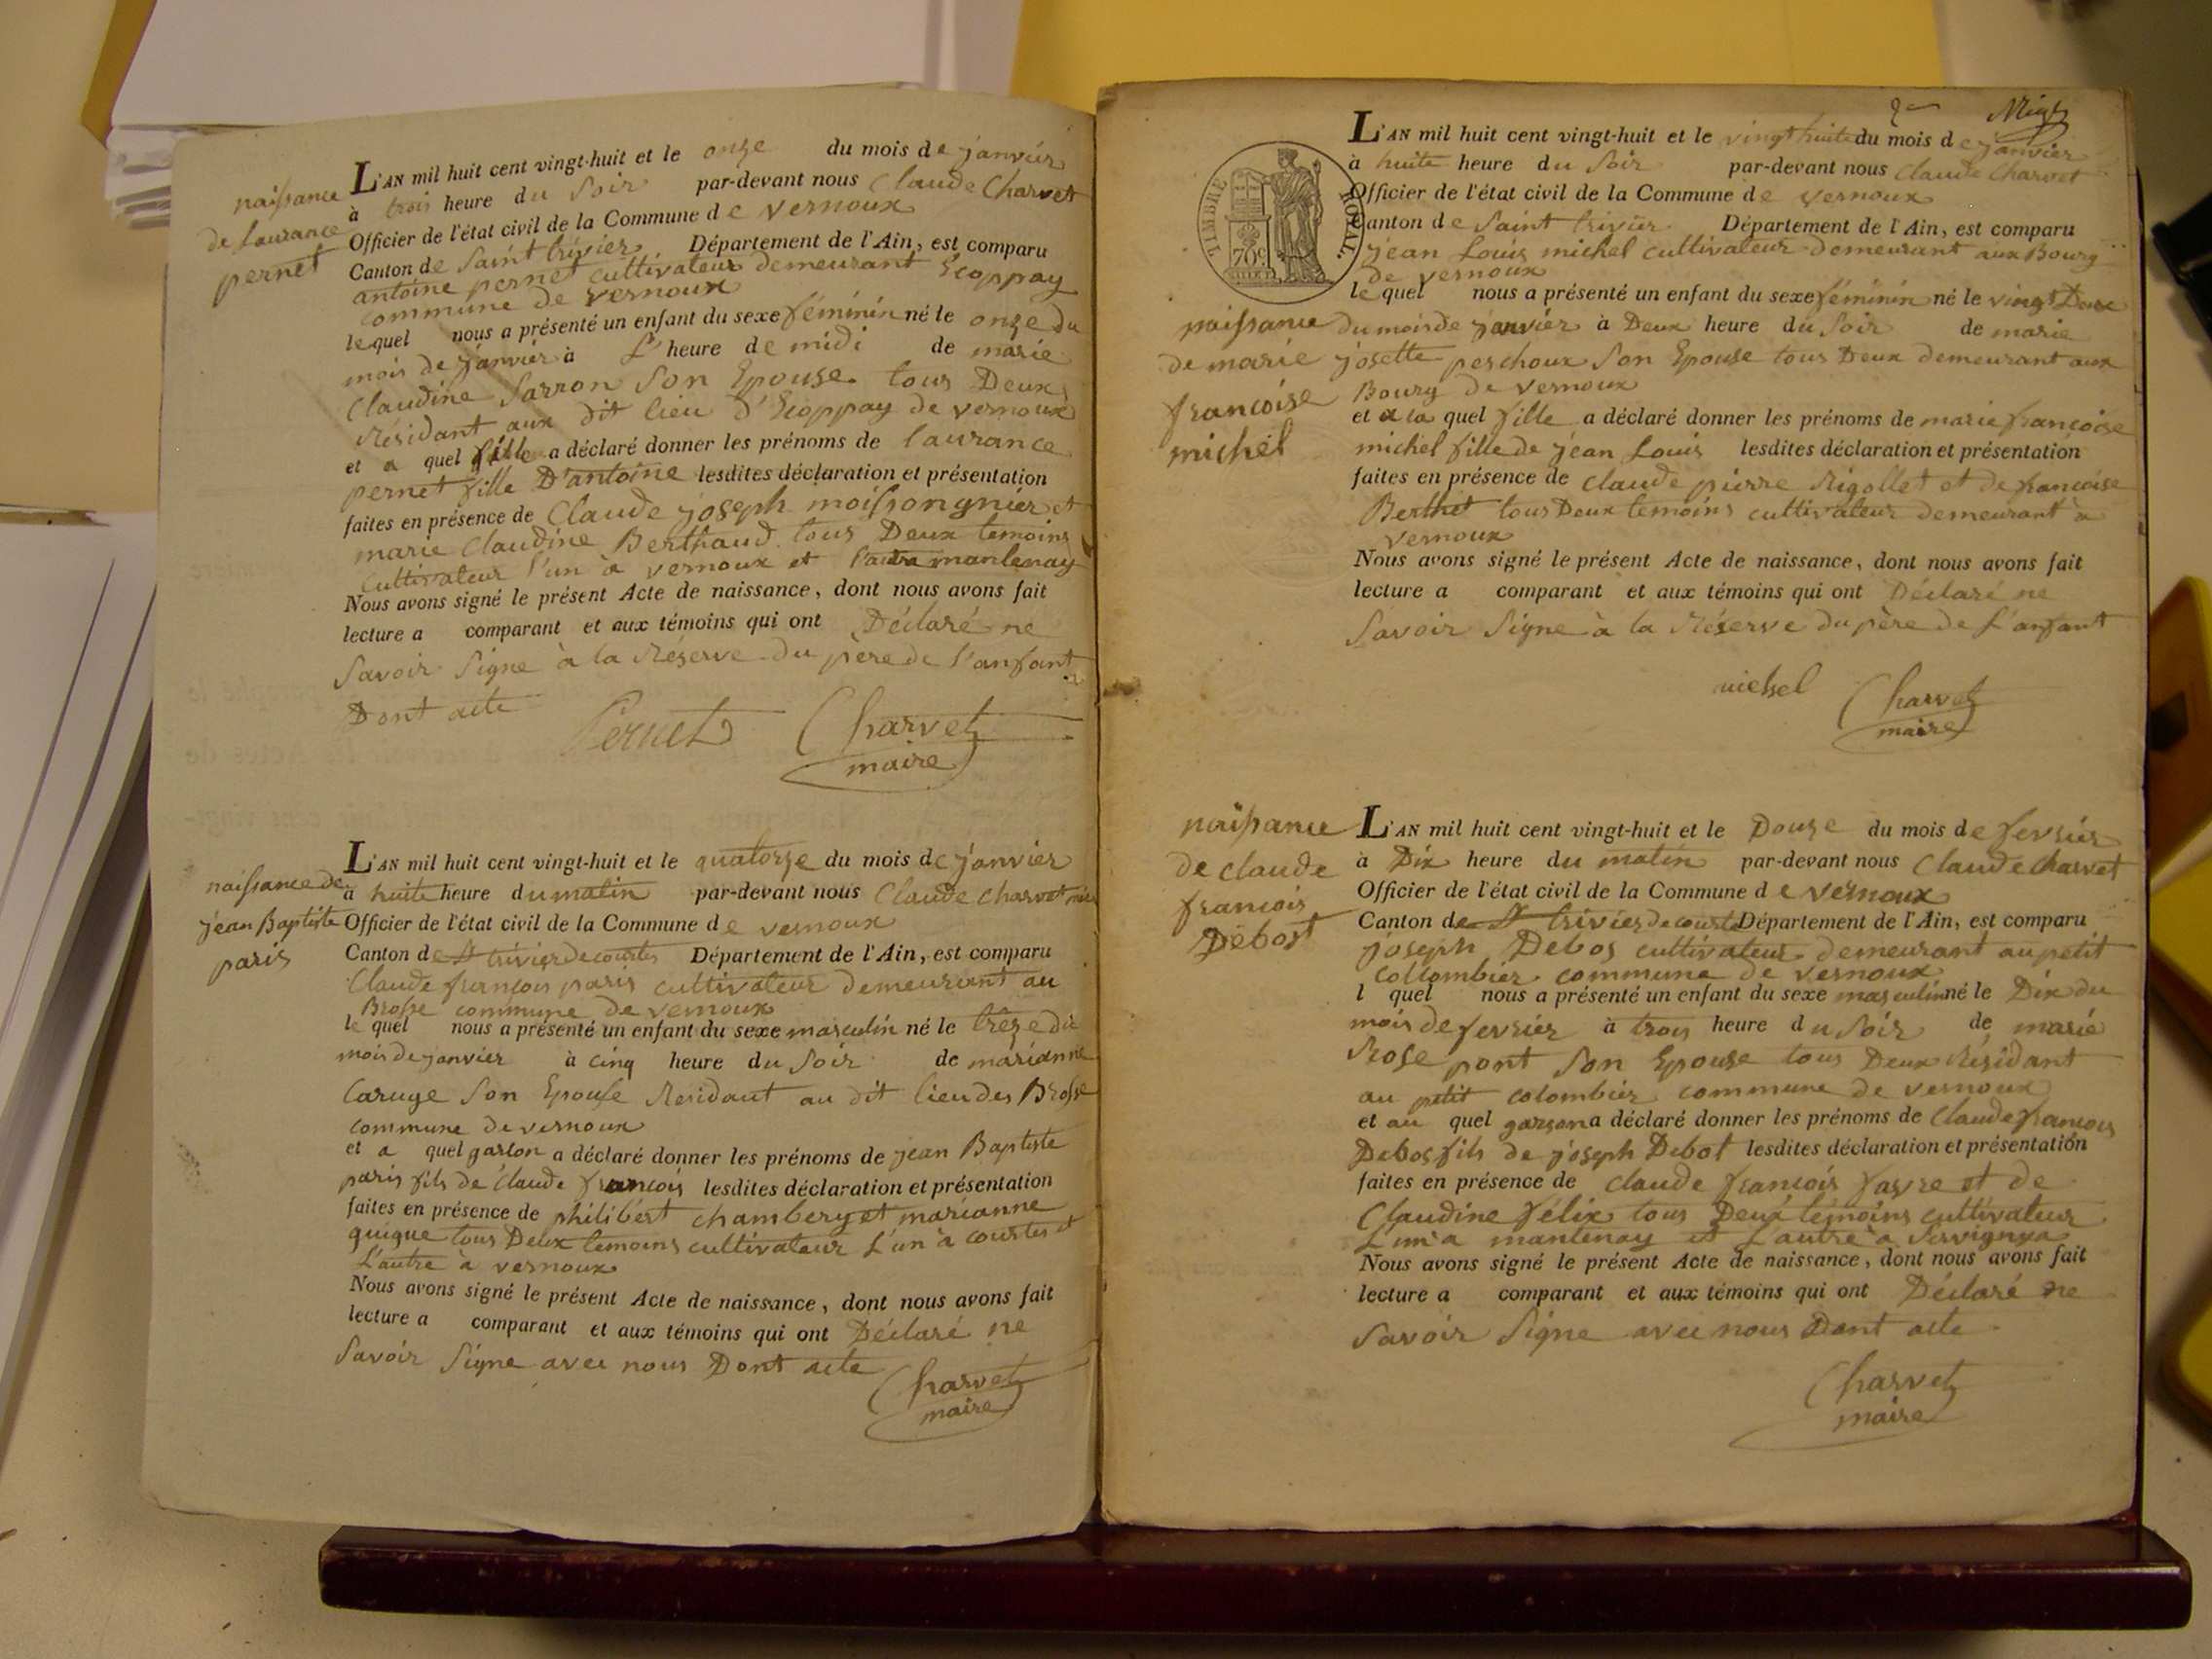 naissance
de Laurance
pernet
L'AN mil huit cent vingt-huit et le onze du mois de janvier
à trois heure du Soir par-devant nous Claude Charvet
Officier de l'état civil de la Commune de Vernoux
Canton de Saint trivier Département de l'Ain, est comparu
antoine pernet cultivateur demeurant Ecoppay
commune de Vernoux
lequel nous a présenté un enfant du sexe féminin né le onze du
mois de janvier à L' heure de midi de marie
Claudine Sarron Son Epouse tous Deux
Résidant aux dit lieu d'Ecoppay de vernoux
et a quel fille a déclaré donner les prénoms de laurance
pernet fille D'antoine lesdites déclaration et présentation
faites en présence de Claude joseph moissongnier et
marie Claudine Berthaud tous Deux temoins
Cultivateur l'un à vernoux et l'autre mantenay
Nous avons signé le présent Acte de naissance, dont nous avons fait
lecture a comparant et aux témoins qui ont Déclaré ne
Savoir Signe à la Réserve du père de l'anfant
Dont acte
Pernet Charvet
maire
naissance de
jean Baptiste
paris
L'AN mil huit cent vingt-huit et le quatorze du mois de janvier
à huite heure du matin par-devant nous Claude Charvet
Officier de l'état civil de la Commune de vernoux
Canton de St trivier de courtes Département de l'Ain, est comparu
Claude françois paris cultivateur demeurant au
Brosse commune de vernoux
le quel nous a présenté un enfant du sexe masculin né le trèze du
mois de janvier à cinq heure du Soir de marianne
Caruge Son Epouse Residant au dit lieu des Brosse
commune de vernoux
et a quel garson a déclaré donner les prénoms de jean Baptiste
paris fils de Claude françois lesdites déclaration et présentation
faites en présence de philibert chambery et marianne
guigue tous Deux temoins cultivateur L'un à courtes et
L'autre à vernoux
Nous avons signé le présent Acte de naissance, dont nous avons fait
lecture a comparant et aux témoins qui ont Déclaré ne
Savoir Signe avec nous Dont acte
Charvet
maire
TIMBRE ROYAL
70c
naissance
de marie
françoise
michel
L'AN mil huit cent vingt-huit et le vingt huite du mois de janvier
à huite heure du Soir par-devant nous Claude Charvet
Officier de l'état civil de la Commune de vernoux
Canton de Saint trivier Département de l'Ain, est comparu
jean Louis michel cultivateur demeurant aux Bourg
de vernoux
le quel nous a présenté un enfant du sexe féminin né le vingt Deux
du mois de janvier à Deux heure du Soir de marie
josette peschoux Son Epouse tous Deux demeurant aux
Bourg de vernoux
et a la quel fille a déclaré donner les prénoms de marie françoise
michel fille de jean Louis lesdites déclaration et présentation
faites en présence de claude pierre Rigollet et de françoise
Berthet tous Deux temoins cultivateur demeurant à
vernoux
Nous avons signé le présent Acte de naissance, dont nous avons fait
lecture a comparant et aux témoins qui ont Déclaré ne
Savoir Signe à la Réserve du père de L'anfant
michel Charvet
maire
naissance
de claude
françois
Debost
L'AN mil huit cent vingt-huit et le Douze du mois de fevrier
à Dix heure du matin par-devant nous Claude Charvet
Officier de l'état civil de la Commune de vernoux
Canton de St trivier de courtes Département de l'Ain, est comparu
joseph Debos cultivateur demeurant au petit
collombier commune de vernoux
l quel nous a présenté un enfant du sexe masculin né le Dix du
mois de fevrier à trois heure du Soir de marie
Rose pont Son Epouse tous Deux Résidant
au petit colombier commune de vernoux
et au quel garson a déclaré donner les prénoms de Claude françois
Debos fils de joseph Debot lesdites déclaration et présentation
faites en présence de claude françois favre et de
Claudine félix tous Deux témoins cultivateur
L'un a mantenay et L'autre a Servignya
Nous avons signé le présent Acte de naissance, dont nous avons fait
lecture a comparant et aux témoins qui ont Déclaré ne
Savoir Signe avec nous Dont acte
Charvet
maire